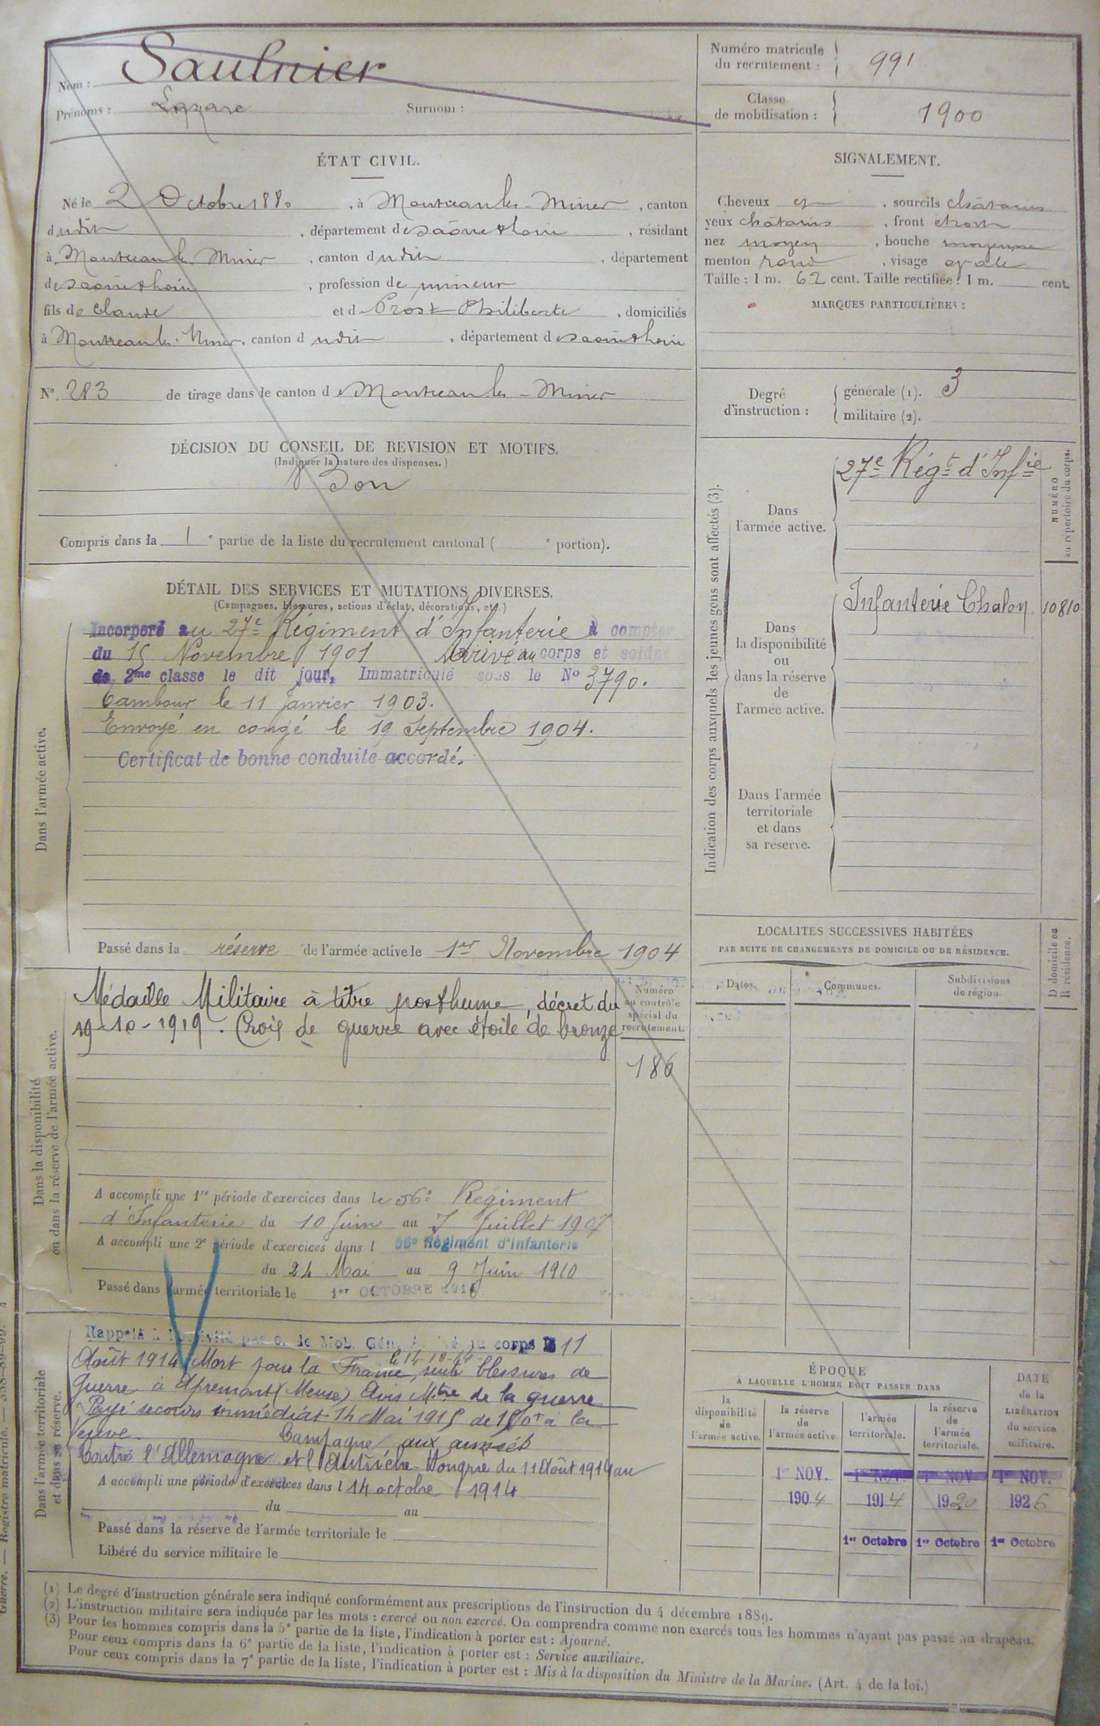 Nom : Saulnier
Prénoms : Lazare Surnom :
Numéro matricule du recrutement : 991
Classe de mobilisation : 1900
ÉTAT CIVIL.
Né le 2 Octobre 1880, à Montceau les-Mines, canton
dudit, département de Saône & Loire, résidant
à Montceau les Mines, canton dudit, département
de Saône & Loire, profession de mineur
fils de Claude et de Prost Philiberte, domiciliés
à Montceau les-Mines, canton dudit, département de Saône & Loire
N° 283 de tirage dans le canton de Montceau les-Mines
DÉCISION DU CONSEIL DE REVISION ET MOTIFS.
(Indiquer la nature des dispenses.)
Bon
Compris dans la 1e partie de la liste du recrutement cantonal ( e portion).
SIGNALEMENT.
Cheveux et, sourcils châtains
yeux châtains, front étroit
nez moyen, bouche moyenne
menton rond, visage ovale
Taille : 1 m. 62 cent. Taille rectifiée : 1 m. cent.
MARQUES PARTICULIÈRES :
Degré d'instruction :
générale (1). 3
militaire (2).
DÉTAIL DES SERVICES ET MUTATIONS DIVERSES.
(Campagnes, blessures, actions d'éclat, décorations, etc.)
Dans l'armée active.
Incorporé au 27e Régiment d'Infanterie à compter
du 15 Novembre 1901 Arrivé au corps et soldat
de 2me classe le dit jour, Immatriculé sous le No 3790.
Tambour le 11 Janvier 1903.
Envoyé en congé le 19 Septembre 1904.
Certificat de bonne conduite accordé.
Passé dans la réserve de l'armée active le 1er Novembre 1904
Indication des corps auxquels les jeunes gens sont affectés (3).
NUMÉRO au répertoire du corps.
Dans l'armée active.
27e Régt d'Infie
Dans la disponibilité ou dans la réserve de l'armée active.
Infanterie Chalon 10810
Dans l'armée territoriale et dans sa réserve.
LOCALITÉS SUCCESSIVES HABITÉES
PAR SUITE DE CHANGEMENTS DE DOMICILE OU DE RÉSIDENCE.
Dates. Communes. Subdivisions de région. D domicile ou R résidence.
Dans la disponibilité ou dans la réserve de l'armée active.
Médaille Militaire à titre posthume, décret du
19-10-1919. Croix de guerre avec étoile de bronze
Numéro au contrôle spécial du recrutement.
186
A accompli une 1re période d'exercices dans le 56e Régiment
d'Infanterie du 10 Juin au 7 Juillet 1907
A accompli une 2e période d'exercices dans l 56e Régiment d'Infanterie
du 24 Mai au 9 Juin 1910
Passé dans l'armée territoriale le 1er OCTOBRE 1914
Dans l'armée territoriale et dans sa réserve.
Rappelé à l'activité par o. de Mob. Gén. Arrivé au corps le 11
le 14-10-14
Août 1914 Mort pour la France, suite blessures de
Guerre à Apremont (Meuse) Avis Mtre de la guerre
Payé secours immédiat 14 Mai 1915 de 150f à la
veuve. Campagne aux armées
Contre l'Allemagne et l'Autriche-Hongrie du 11 Août 1914 au
A accompli une période d'exercices dans l 14 octobre 1914
du au
Passé dans la réserve de l'armée territoriale le
Libéré du service militaire le
ÉPOQUE
À LAQUELLE L'HOMME DOIT PASSER DANS
la disponibilité de l'armée active. la réserve de l'armée active. l'armée territoriale. la réserve de l'armée territoriale.
DATE de la LIBÉRATION du service militaire.
1er NOV. 1er NOV. 1er NOV. 1er NOV.
1904 1914 1920 1926
1er Octobre 1er Octobre 1er Octobre
(1) Le degré d'instruction générale sera indiqué conformément aux prescriptions de l'instruction du 4 décembre 1889.
(2) L'instruction militaire sera indiquée par les mots : exercé ou non exercé. On comprendra comme non exercés tous les hommes n'ayant pas passé au drapeau.
(3) Pour les hommes compris dans la 5e partie de la liste, l'indication à porter est : Ajourné.
Pour ceux compris dans la 6e partie de la liste, l'indication à porter est : Service auxiliaire.
Pour ceux compris dans la 7e partie de la liste, l'indication à porter est : Mis à la disposition du Ministre de la Marine. (Art. 4 de la loi.)